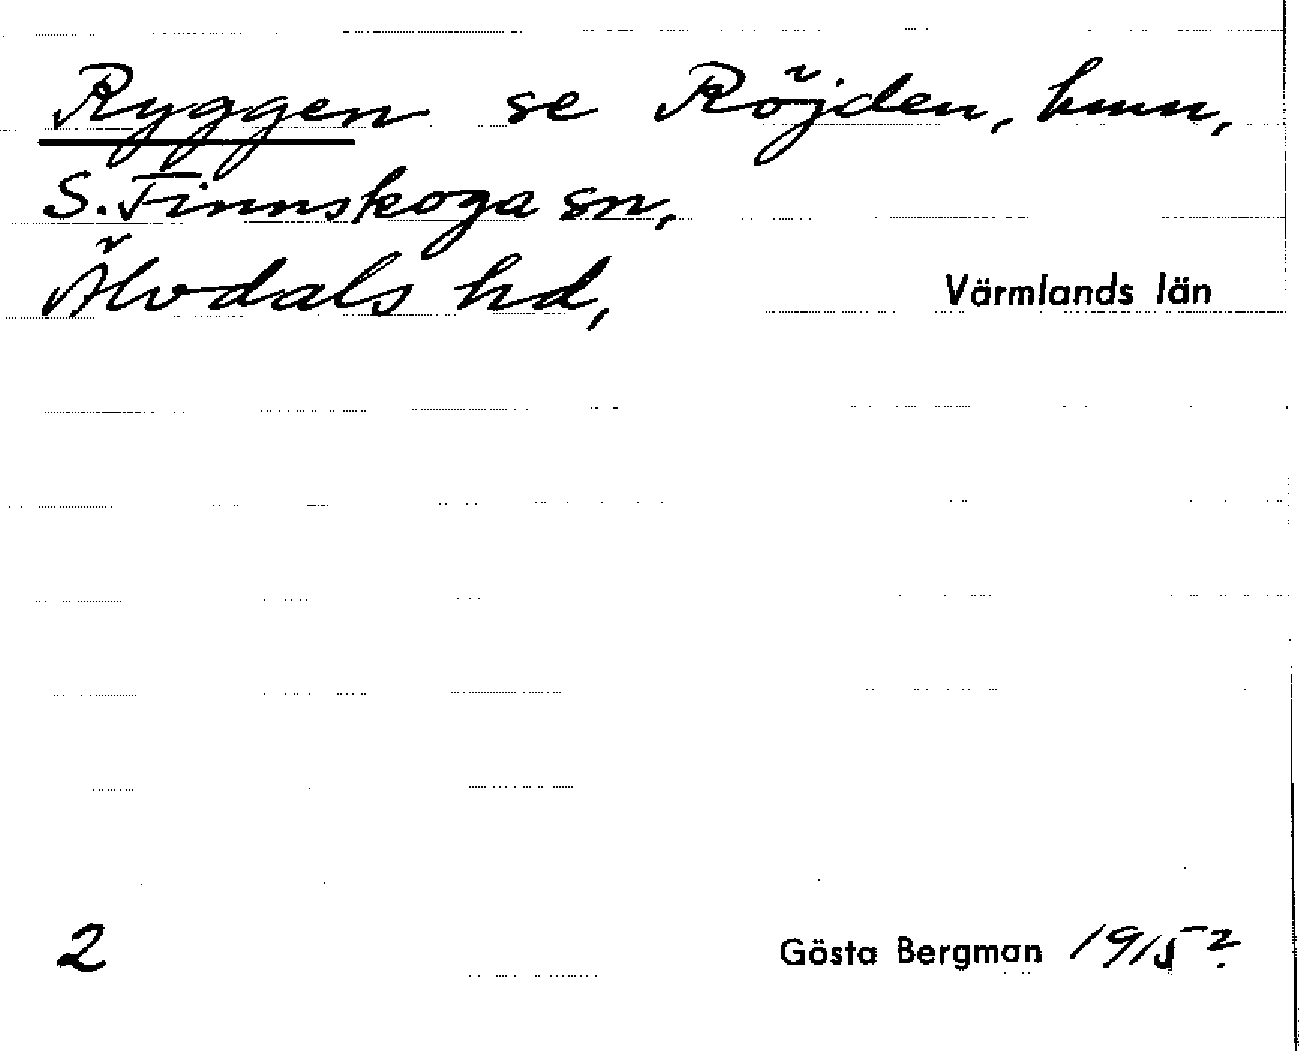 Ryggen se Röjden, hmn,
S. Finnskoga sn,
Älvdals hd, Värmlands län
2 Gösta Bergman 1915?